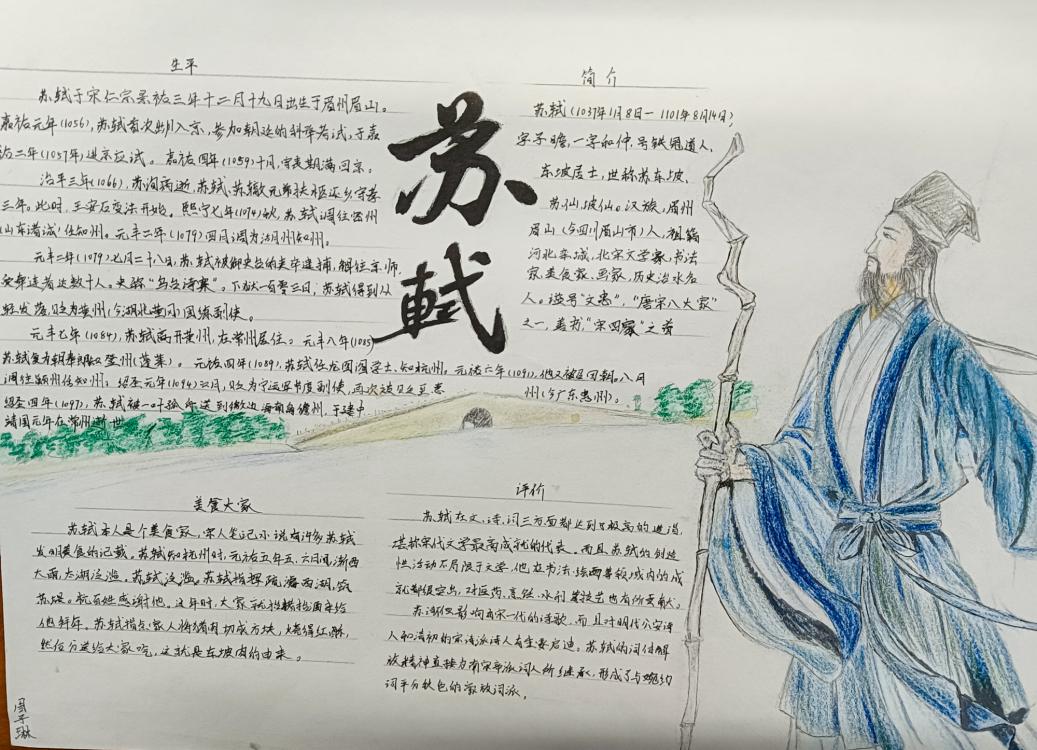 生平
苏轼于宋仁宗景祐三年十二月十九日出生于眉州眉山。
嘉祐元年(1056),苏轼首次出川入京,参加朝廷的科举考试,于嘉
祐二年(1057年)进京应试。嘉祐四年(1059)十月,守丧期满回京。
治平三年(1066),苏洵病逝,苏轼、苏辙兄弟扶柩还乡,守孝
三年。此时,王安石变法开始。熙宁七年(1074)秋,苏轼调往密州
(山东诸诚)任知州。元丰二年(1079)四月调为湖州知州。
元丰二年(1079)七月二十八日,苏轼被御史台的吏卒逮捕,解往京师,
受牵连者达数十人。史称"乌台诗案"。下狱一百零三日,苏轼得到从
轻发落,贬为黄州(今湖北黄冈)团练副使。
元丰七年(1084),苏轼离开黄州,在常州居住。元丰八年(1085)
苏轼复为朝奉郎知登州(蓬莱)。元祐四年(1089),苏轼任龙图阁学士、知杭州。元祐六年(1091),他又被召回朝。八月
调往颍州任知州,绍圣元年(1094)六月,贬为宁远军节度副使,再次被贬至惠
州(今广东惠州)。
绍圣四年(1097),苏轼被一叶孤舟送到徼边海南岛儋州,于建中
靖国元年在常州逝世
苏
轼
简介
苏轼(1037年1月8日一1101年8月24日)
字子瞻,一字和仲,号铁冠道人、
东坡居士,世称苏东坡、
苏仙,坡仙。汉族,眉州
眉山(今四川眉山市)人,祖籍
河北栾城,北宋文学家、书法
家、美食家、画家,历史治水名
人。谥号"文忠","唐宋八大家"
之一,善书,"宋四家"之首
美食大家
苏轼本人是个美食家,宋人笔记小说有许多苏轼
发明美食的记载。苏轼知杭州时,元祐五年五、六月间,浙西
大雨,太湖泛滥。苏轼泛滥。苏轼指挥疏浚西湖,筑
苏堤。杭百姓感谢他。过年时,大家就抬猪担酒来给
他拜年。苏轼指点家人将猪肉切成方块,烧得红酥,
然后分送给大家吃,这就是东坡肉的由来。
评价
苏轼在文、诗、词三方面都达到了极高的造诣,
堪称宋代文学最高成就的代表。而且苏轼的创造
性活动不局限于文学,他在书法、绘画等领域内的成
就都很突出,对医药、烹饪、水利等技艺也有所贡献。
苏词仅影响有宋一代的诗歌,而且对明代公安诗
人和清初的宋诗派诗人有重要启迪。苏轼的词体解
放精神直接为南宋辛派词人所继承,形成了与婉约
词平分秋色的豪放词派。
周子琳